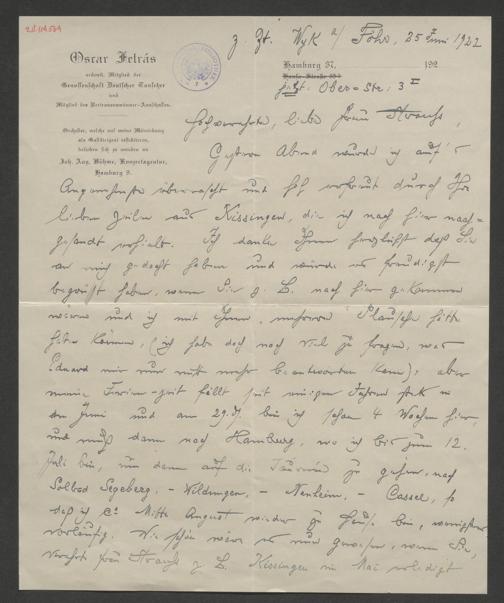 z. Zt. Wyk a/ Föhr, 25 Juni 1922
Oscar Fetrás
ordentl. Mitglied der
Genossenschaft Deutscher Tonsetzer
und
Mitglied des Vertrauensmänner-Ausschusses.
Orchester, welche auf meine Mitwirkung
als Gastdirigent reflektieren,
belieben sich zu wenden an
Joh. Aug. Böhme, Konzertagentur,
Hamburg
Hamburg 37, 192
jetzt: Ober-Str: 3 I
Hochverehrte, liebe Frau Strauss,
Gestern Abend wurde ich auf's
Angenehmste überrascht und erfreut durch Ihre
lieben Zeilen aus Kissingen, die ich nach hier nach-
gesandt erhielt. Ich danke Ihnen herzlichst daß Sie
an mich gedacht haben und würde es freudigst
begrüßt haben, wenn Sie z. B. nach hier gekommen
wären und ich mit Ihnen, mehrere Plausche hätte
haben können, (ich habe doch noch viel zu fragen, was
Eduard mir nun nicht mehr beantworten kann); aber
meine Ferien-zeit fällt seit einigen Jahren stets in
den Juni und am 29. bin ich schon 4 Wochen hier,
und muß dann nach Hamburg, wo ich bis zum 12.
Juli bin, um dann auf die Tournée zu gehen, nach
Solbad Segeberg, - Wildungen, - Nauheim, - Cassel, so
daß ich ca Mitte August wieder zu Hause bin, wenigstens
vorläufig. Wie schön wäre es nun gewesen, wenn Sie,
verehrte Frau Strauss z. B. Kissingen im Mai erledigt